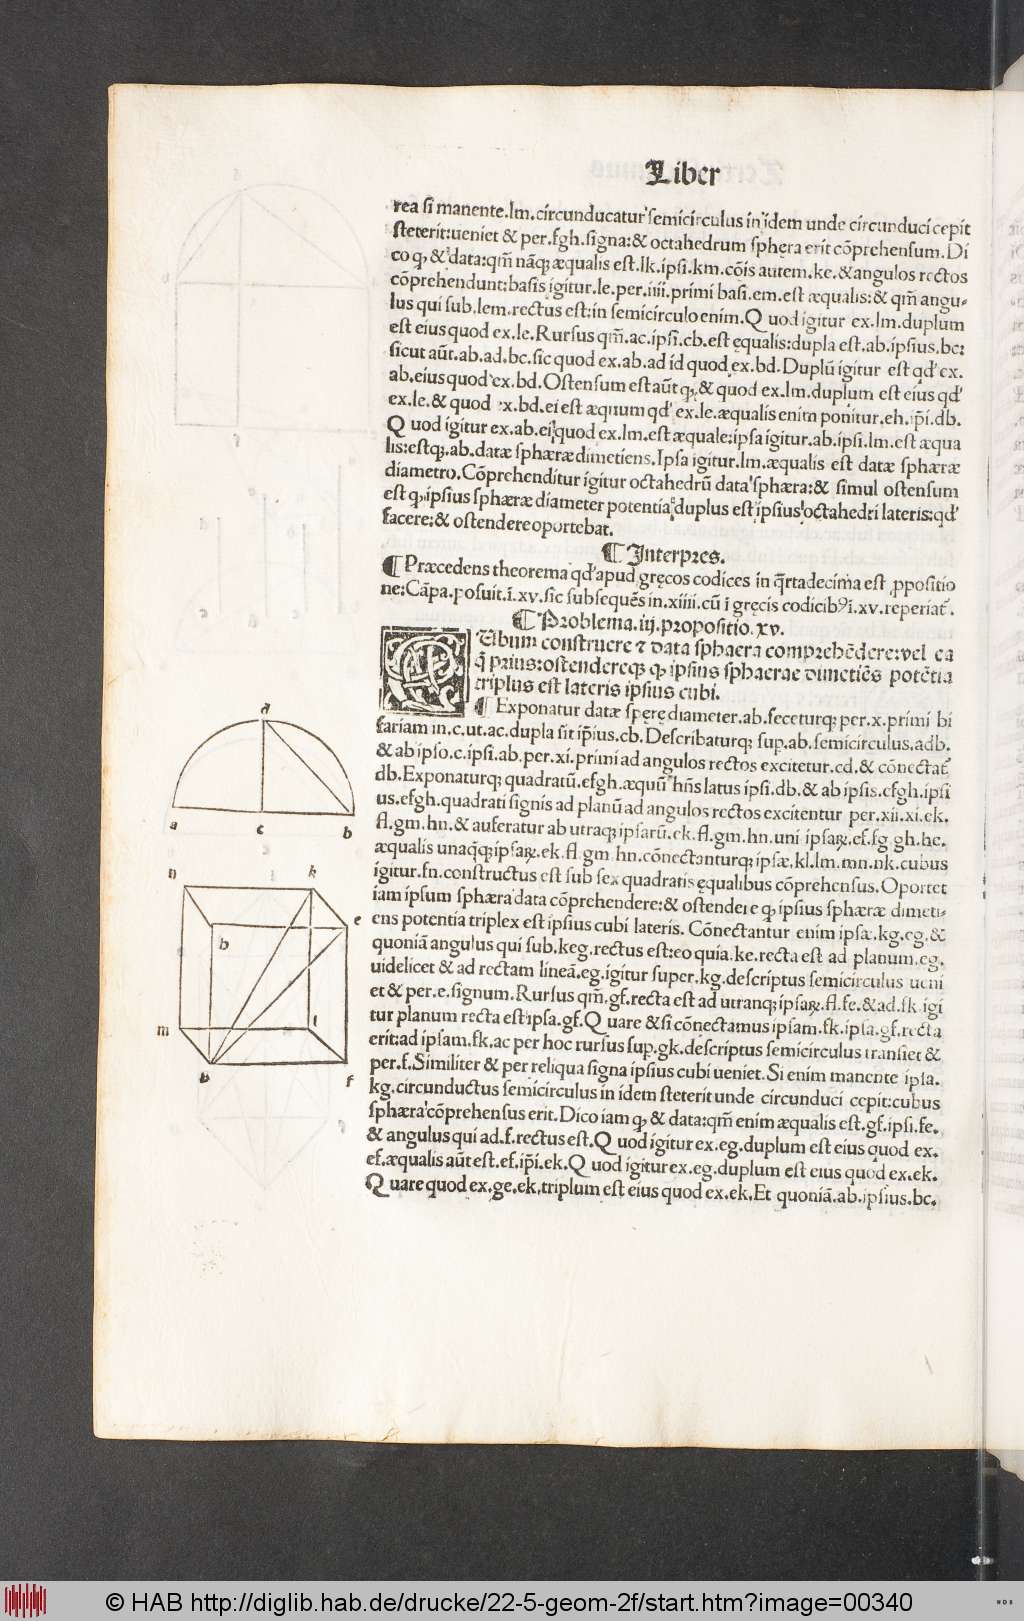 Liber
rea si manente.lm.circunducatur semicirculus in idem unde circunduci cepit
steterit:ueniet & per.fgh.signa:& octahedrum sphęra erit cōprehensum.Di
co ꝙ & data:qm̄ nāq; æqualis est.lk.ipsi.km.cōis autem.ke.& angulos rectos
cōprehendunt:basis igitur.le.per.iiii.primi basi.em.est æqualis:& qm̄ angu-
lus qui sub.lem.rectus est:in semicirculo enim.Quod igitur ex.lm.duplum
est eius quod ex.le.Rursus qm̄.ac.ipsi.cb.est ęqualis:dupla est.ab.ipsius.bc:
sicut aūt.ab.ad.bc.sic quod ex.ab.ad id quod ex.bd.Duplū igitur est qd' ex.
ab.eius quod ex.bd.Ostensum est aūt ꝙ & quod ex.lm.duplum est eius qd'
ex.le.& quod ex.bd.ei est æquum qd' ex.le.æqualis enim ponitur.eh.ip̄i.db.
Quod igitur ex.ab.ei quod ex.lm.est æquale:ipsa igitur.ab.ipsi.lm.est æqua
lis:estq;.ab.datæ sphæræ dimetiens.Ipsa igitur.lm.æqualis est datæ sphæræ
diametro.Cōprehenditur igitur octahedrū data sphæra:& simul ostensum
est ꝙ ipsius sphæræ diameter potentia duplus est ipsius octahedri lateris:qd'
facere:& ostendere oportebat.
¶ Interpres.
¶ Præcedens theorema qd' apud gręcos codices in q̄rtadecima est ꝓpositio
ne:Cāpa.posuit.ī.xv.sic subsequēs in.xiiii.cū ī gręcis codicibꝰ ī.xv.reperiat̄.
¶ Problema.iij.propositio.xv.
CUbum construere & data sphaera comprehēdere:vel ea
q̄ prius:ostendereq; ꝙ ipsius sphaerae dimetiēs potētia
triplus est lateris ipsius cubi.
¶ Exponatur datæ sperę diameter.ab.seceturq; per.x.primi bi
fariam in.c.ut.ac.dupla sit ip̄ius.cb.Describaturq; sup.ab.semicirculus.adb.
& ab ipso.c.ipsi.ab.per.xi.primi ad angulos rectos excitetur.cd.& cōnectat̄
db.Exponaturq; quadratū.efgh.æquū hn̄s latus ipsi.db.& ab ipsis.efgh.ipsi
us.efgh.quadrati signis ad planū ad angulos rectos excitentur per.xii.xi.ek.
fl.gm.hn.& auferatur ab utraq; ipsarū.ek.fl.gm.hn.uni ipsaꝝ.ef.fg gh.he.
æqualis unaq̄q; ipsaꝝ.ek.fl gm hn.cōnectanturq; ipsæ.kl.lm.mn.nk.cubus
igitur.fn.constructus est sub sex quadratis ęqualibus cōprehensus.Oportet
iam ipsum sphæra data cōprehendere:& ostendere ꝙ ipsius sphæræ dimeti-
ens potentia triplex est ipsius cubi lateris. Cōnectantur enim ipsæ.kg.eg.&
quoniā angulus qui sub.keg.rectus est:eo quia.ke.recta est ad planum.eg.
uidelicet & ad rectam lineā.eg.igitur super.kg.descriptus semicirculus ueni
et & per.e.signum.Rursus qm̄.gf.recta est ad utranq; ipsaꝝ.fl.fe.& ad.fk.igi
tur planum recta est ipsa.gf.Quare & si cōnectamus ipsam.fk.ipsa.gf.recta
erit:ad ipsam.fk.ac per hoc rursus sup.gk.descriptus semicirculus transiet &
per.f.Similiter & per reliqua signa ipsius cubi ueniet.Si enim manente ipsa.
kg.circunductus semicirculus in idem steterit unde circunduci cepit:cubus
sphæra cōprehensus erit.Dico iam ꝙ & data:qm̄ enim æqualis est.gf.ipsi.fe.
& angulus qui ad.f.rectus est.Quod igitur ex.eg.duplum est eius quod ex.
ef.æqualis aūt est.ef.ip̄i.ek.Quod igitur ex.eg.duplum est eius quod ex.ek.
Quare quod ex.ge.ek.triplum est eius quod ex.ek.Et quoniā.ab.ipsius.bc.
d
a c b
n k
e
h
m l
g
f
© HAB http://diglib.hab.de/drucke/22-5-geom-2f/start.htm?image=00340